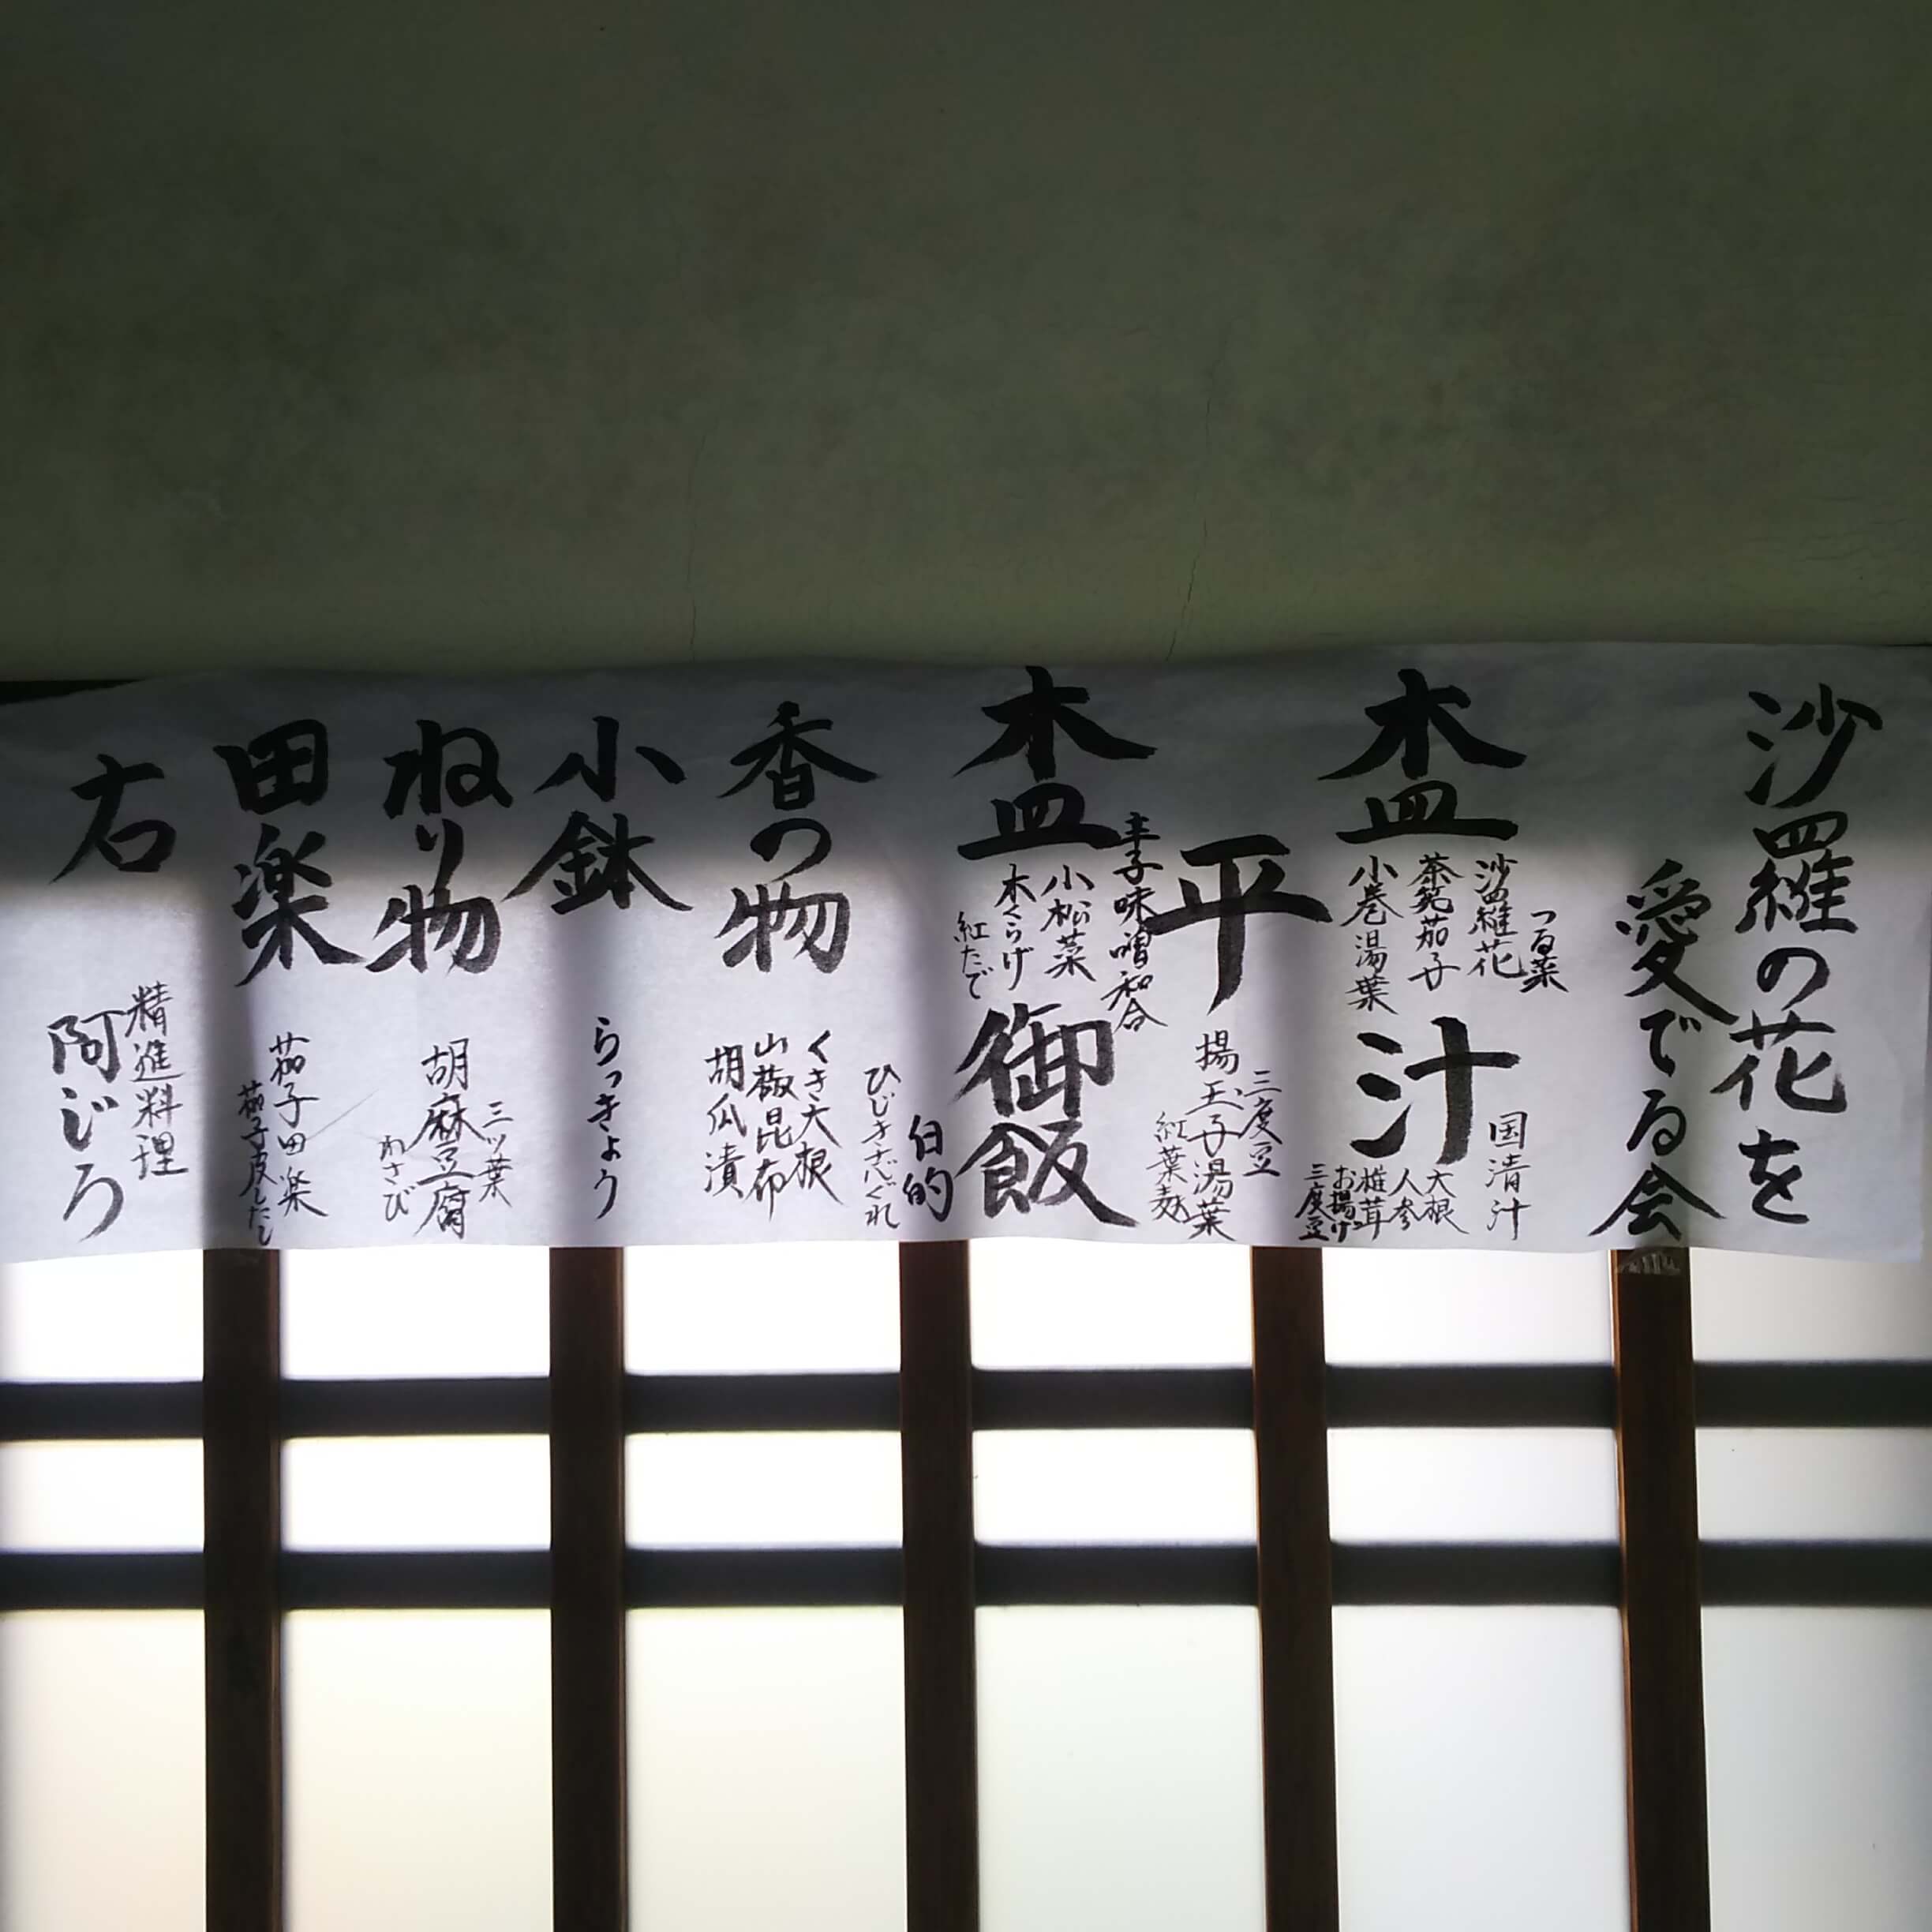 沙羅の花を
愛でる会
木皿
つる菜
沙羅花
茶筅茄子
小巻湯葉
汁
国清汁
大根
人参
椎茸
お揚げ
三度豆
平
三度豆
揚玉子湯葉
紅葉麸
木皿
辛子味噌和合
小松菜
木くらげ
紅たで
御飯
白的
ひじきしぐれ
香の物
くき大根
山椒昆布
胡瓜漬
小鉢
らっきょう
ねり物
三ッ葉
胡麻豆腐
わさび
田楽
茄子田楽
茄子皮したし
右
精進料理
阿じろ